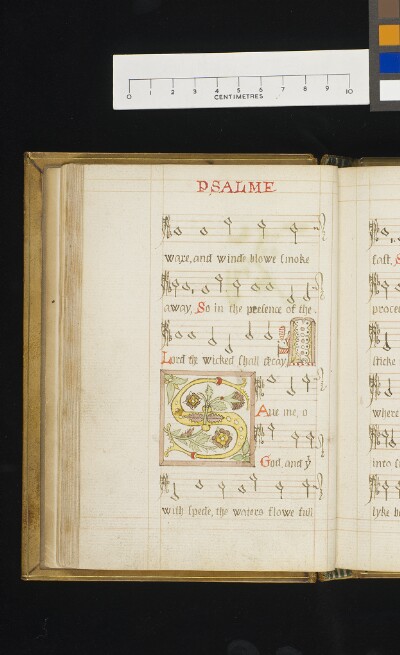 0 1 2 3 4 5 6 7 8 9 10
CENTIMETRES
PSALME
waxe, and winde blowe smoke
away, So in the presence of the
Lord the wicked shall decay
S
Aue me, o
God, and yͤ
with spede, the waters flowe full
fast,
proce
sticke
where
into
lyke